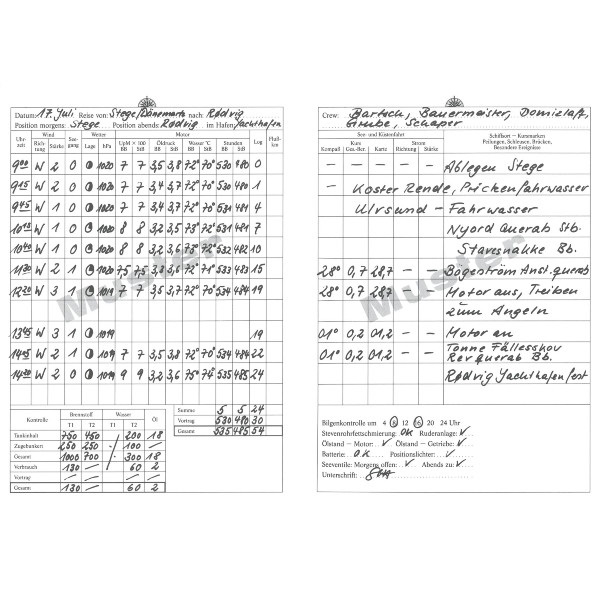 Datum: 17. Juli Reise von: Stege/Dänemark nach: Rødvig
Position morgens: Stege Position abends: Rødvig im Hafen/Yachthafen
Uhrzeit Wind Seegang Wetter Motor Log Flußken
Richtung Stärke Lage hPa UpM × 100 Öldruck Wasser °C Stunden
BB StB BB StB BB StB BB StB
9⁰⁰ W 2 0 1020 7 7 3,5 3,8 72° 70° 530 480 0
9¹⁵ W 2 0 1020 7 7 3,4 3,7 72° 70° 530 480 1
9⁴⁵ W 2 1 1020 7 7 3,4 3,7 72° 70° 531 481 4
10¹⁰ W 2 0 1020 8 8 3,2 3,5 73° 72° 531 481 7
10⁴⁰ W 2 0 1020 8 8 3,2 3,6 75° 72° 532 482 10
11³⁰ W 2 0 1020 7,5 7,5 3,8 3,6 72° 71° 533 483 15
12²⁰ W 3 1 1019 7 7 3,5 3,7 72° 70° 534 484 19
13⁴⁵ W 3 1 1019 19
14⁰⁵ W 2 1 1019 7 7 3,5 3,8 72° 70° 534 484 22
14³⁰ W 2 0 1019 9 9 3,2 3,6 75° 74° 535 485 24
Summe 5 5 24
Vortrag 530 480 30
Gesamt 535 485 54
Kontrolle Brennstoff Wasser Öl
T1 T2 T1 T2
Tankinhalt 750 450 200 18
Zugebunkert 250 250 100 —
Gesamt 1000 700 300 18
Verbrauch 130 — 60 2
Vortrag — — — —
Gesamt 130 — 60 2
Crew: Bartsch, Bauermeister, Domielaff,
Grube, Schaper
See- und Küstenfahrt Schiffsort - Kursmarken
Kompaß Kurs Strom Peilungen, Schleusen, Brücken,
Karte Richtung Stärke Besondere Ereignisse
— — — — — Ablegen Stege
— Koster Rende, Prickenfahrwasser
Ulvsund — Fahrwasser
Nyord Querab Stb.
Stavesnakke Bb.
28° 0,7 28,7 — — Bøgestrøm Anst. querab
28° 0,7 28,7 — — Motor aus, Treiben
zum Angeln
01° 0,2 01,2 — — Motor an
01° 0,2 01,2 — — Tonne Fällesskov
Rev Querab Bb.
Rødvig Yachthafen fest
Bilgenkontrolle um 4 8 12 16 20 24 Uhr
Stevenrohrfettschmierung: OK Ruderanlage: ✓
Ölstand - Motor: ✓ Ölstand - Getriebe: ✓
Batterie: OK Positionslichter: ✓
Seeventile: Morgens offen: ✓ Abends zu: ✓
Unterschrift:
Muster
Muster